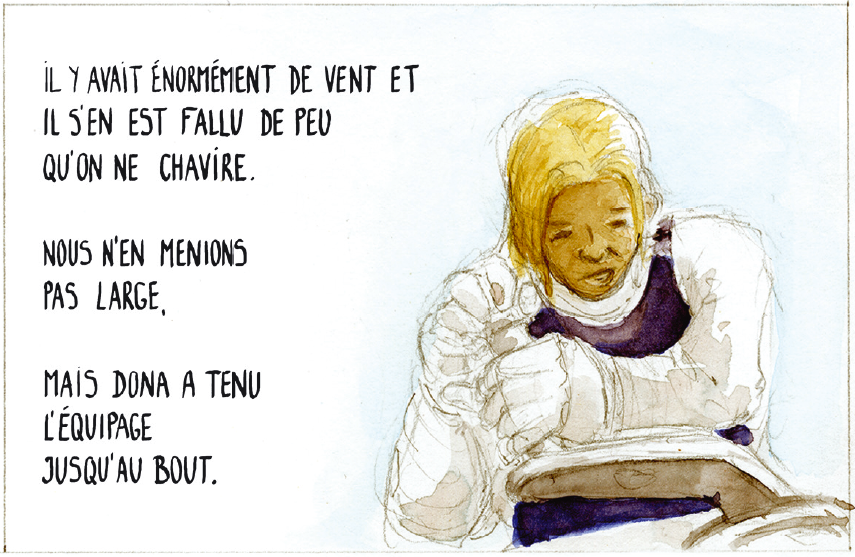 IL Y AVAIT ÉNORMÉMENT DE VENT ET
IL S'EN EST FALLU DE PEU
QU'ON NE CHAVIRE.
NOUS N'EN MENIONS
PAS LARGE,
MAIS DONA A TENU
L'ÉQUIPAGE
JUSQU'AU BOUT.